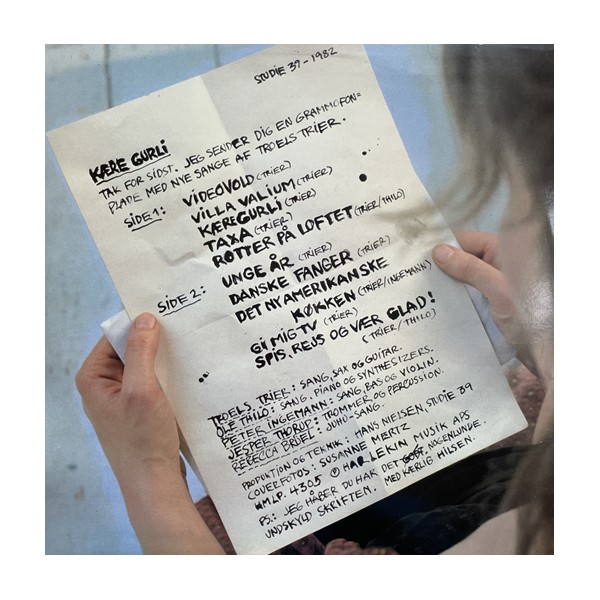 STUDIE 39 - 1982
KÆRE GURLI
TAK FOR SIDST. JEG SENDER DIG EN GRAMMOFON=
PLADE MED NYE SANGE AF TROELS TRIER.
SIDE 1: VIDEOVOLD (TRIER)
VILLA VALIUM (TRIER)
KÆRE GURLI (TRIER)
TAXA (TRIER)
ROTTER PÅ LOFTET (TRIER/THILO)
SIDE 2: UNGE ÅR (TRIER)
DANSKE FANGER (TRIER)
DET NY AMERIKANSKE
KØKKEN (TRIER/INGEMANN)
GI' MIG TV (TRIER)
SPIS, REJS OG VÆR GLAD!
(TRIER/THILO)
TROELS TRIER: SANG, SAX OG GUITAR.
OLE THILO: SANG, PIANO OG SYNTHESIZERS.
PETER INGEMANN: SANG, BAS OG VIOLIN.
JESPER THORUP: TROMMER OG PERCUSSION.
REBECCA BRÜEL: JUHU-SANG.
PRODUKTION OG TEKNIK: HANS NIELSEN, STUDIE 39
COVERFOTOS: SUSANNE MERTZ
HMLP. 4305 Ⓟ HARLEKIN MUSIK APS
PS.: JEG HÅBER DU HAR DET GODT, NOGENLUNDE.
UNDSKYLD SKRIFTEN. MED KÆRLIG HILSEN.